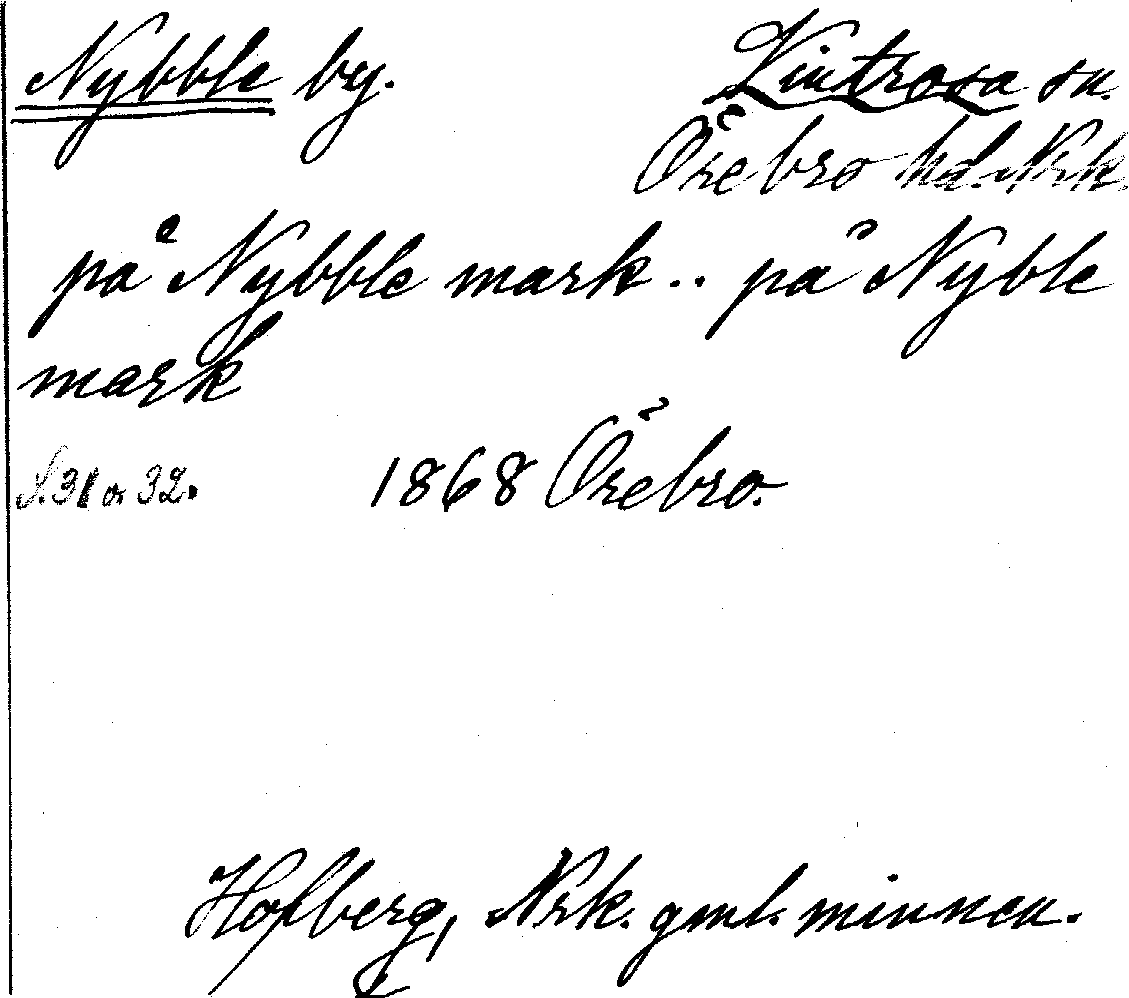 Nybble by. Vintrosa sn.
Örebro hd. Nrk.
på Nybble mark .. på Nyble
mark
S. 31 o. 32. 1868 Örebro.
Hofberg, Nrk. gml. minnen.